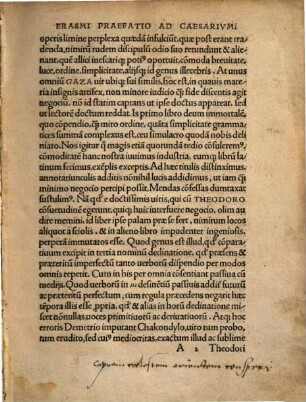 ERASMI PRAEFATIO AD CAESARIVM
operis limine perplexa quædā insulciūt, quæ post erant tra
denda, nimirū rudem discipulū odio sito retundunt & alie-
nant, quē allici inescariq; potꝰ oportuit, cōmoda breuitate,
luce, ordine, simplicitate, alijsq; id genus illecebris. At unus
omniū GAZA uir ubiq; sui similis, hoc est, in quauis mate
ria insignis artifex, non minore indicio q̄ side discenti agit
negociū. nō id statim captans ut ipse doctus appareat. sed
ut lectorē doctum reddat. Is primo libro deum immortalē,
quo compendio, q̄ miro ordine, quàs simplicitate grammati
ces summā complexus est, ceu simulacro quodā nobis deli
niato. Nos igitur q̄ magis citra quorundā tedio cōsulerem⁹,
cōmoditatē hancnostra iuuimus industria. cum q; librū la
tinum fecimus, exēplis exceptis. Ad hæc titulis distinximus,
annotatiunculis additis nōnihil lucis addidimus, ut iam q̄
minimo negocio percipi possit. Mendas cōfessas dumtaxat
sustulim⁹. Nā qd' e doctissimis uiris, qui cū THEODORO
cōsuetudinē egerunt, quiq; huic interfuere negocio, olim au
dire memini. id liber ipse palam præ se fert, nimirum locos
aliquot a sciolis, & in alieno libro impudenter ingeniosis,
perperā immutatos esse. Quod genus est illud, qd' cōpara
tiuum excipit in tertia nominū declinatione, qd' præsens &
præteritū imperfectū tanto uerborū dispendio per modos
omneis repetit. Cum in his per omnia cōsentiant passiua cū
medijs. Quod uerborū in μι desinētiū passiuis addit futurū
ac præteritū perfectum, cum regula præcedens negarit hæc
tēpora illis esse ,ppria. qd' & alias in horū declinatione mise
et nōnullas uoces primitiuorū ac deriuatiuorū. Atq; hoc
erroris Demetrio imputant Chalcondylo, uiro tum probo,
tum erudito, sed cui⁹ mediocritas, exactum illud ac sublime
A 2 Theodori